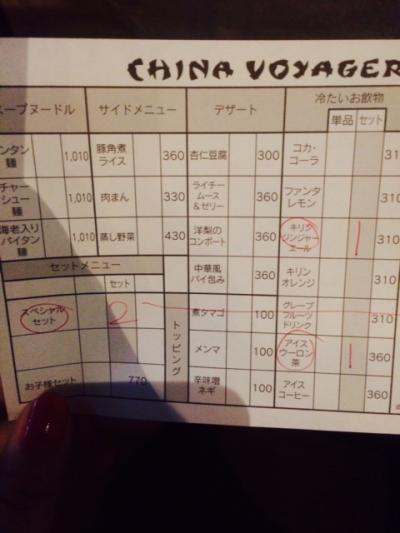 CHINA VOYAGER
ープヌードル サイドメニュー デザート 冷たいお飲物
単品 セット
ンタン麺 1,010 豚角煮ライス 360 杏仁豆腐 300 コカ・コーラ 31
チャーシュー麺 1,010 肉まん 330 ライチームース&ゼリー 360 ファンタレモン 310
海老入りパイタン麺 1,010 蒸し野菜 430 洋梨のコンポート 360 キリンジンジャーエール 1 310
セットメニュー 中華風パイ包み 360 キリンオレンジ 310
セット
スペシャルセット 2 トッピング 煮タマゴ 100 グレープフルーツドリンク 310
メンマ 100 アイスウーロン茶 1 360
お子様セット 770 辛味噌ネギ 100 アイスコーヒー 360